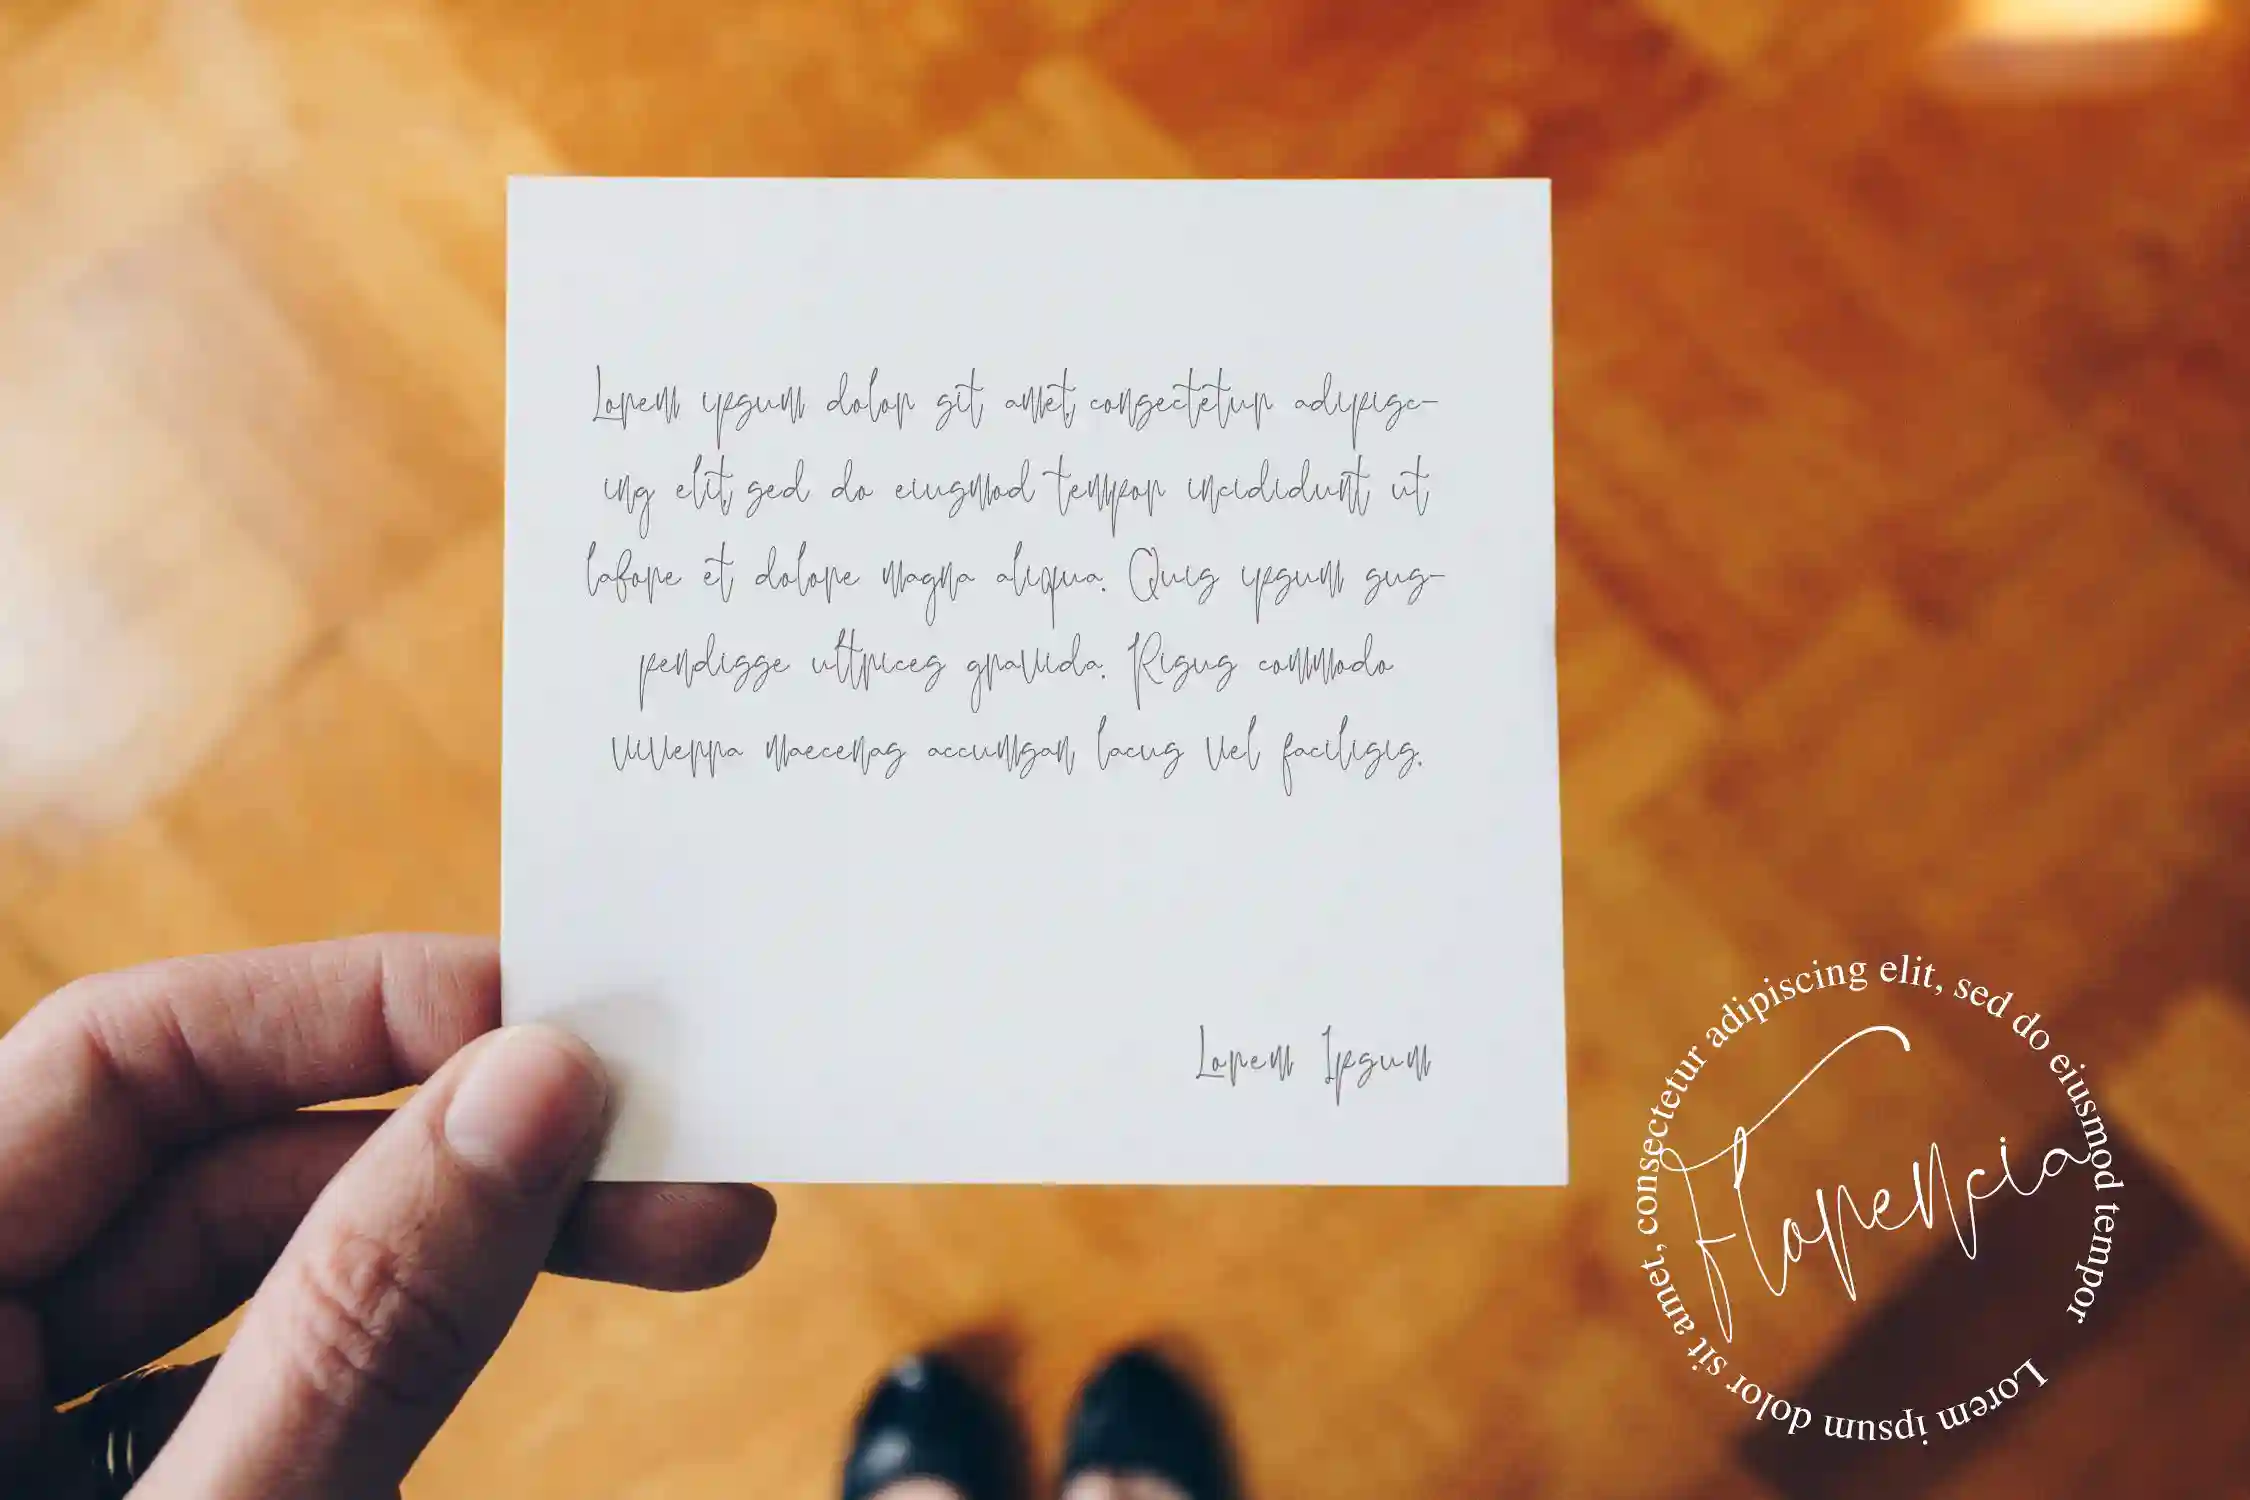 Lorem ipsum dolor sit amet, consectetur adipisc-
ing elit, sed do eiusmod tempor incididunt ut
labore et dolore magna aliqua. Quis ipsum sus-
pendisse ultrices gravida. Risus commodo
viverra maecenas accumsan lacus vel facilisis.
Lorem Ipsum
Lorem ipsum dolor sit amet, consectetur adipiscing elit, sed do eiusmod tempor
Florencia